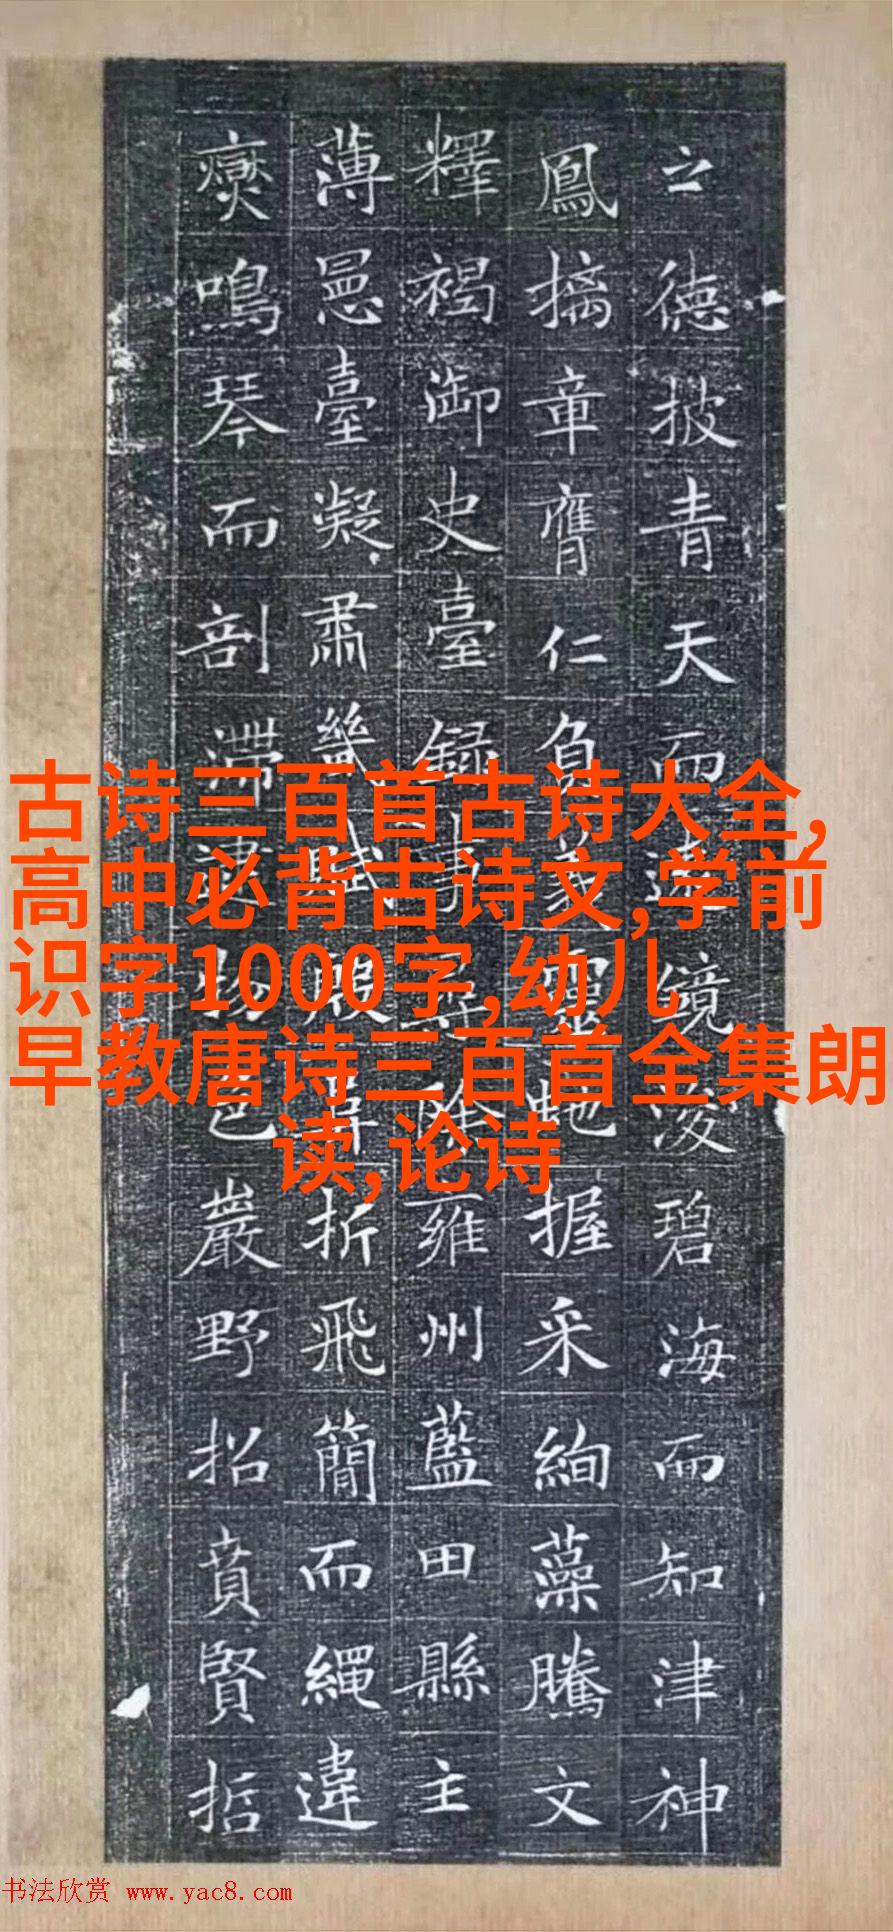 之德披青天而鏡浚碧海而知津神
鳳摛章膺仁負義靈虵握采絢藻騰文
釋褐御史臺録事尋除雍州藍田縣主
薄臺凝肅畿賦殷折飛簡而繩違
鳴琴而剖滯物色巖野招賁賢哲
古诗三百首古诗大全,
高中必背古诗文,学前
识字1000字,幼儿
早教唐诗三百首全集朗
读,论诗
书法欣赏 www.yac8.com